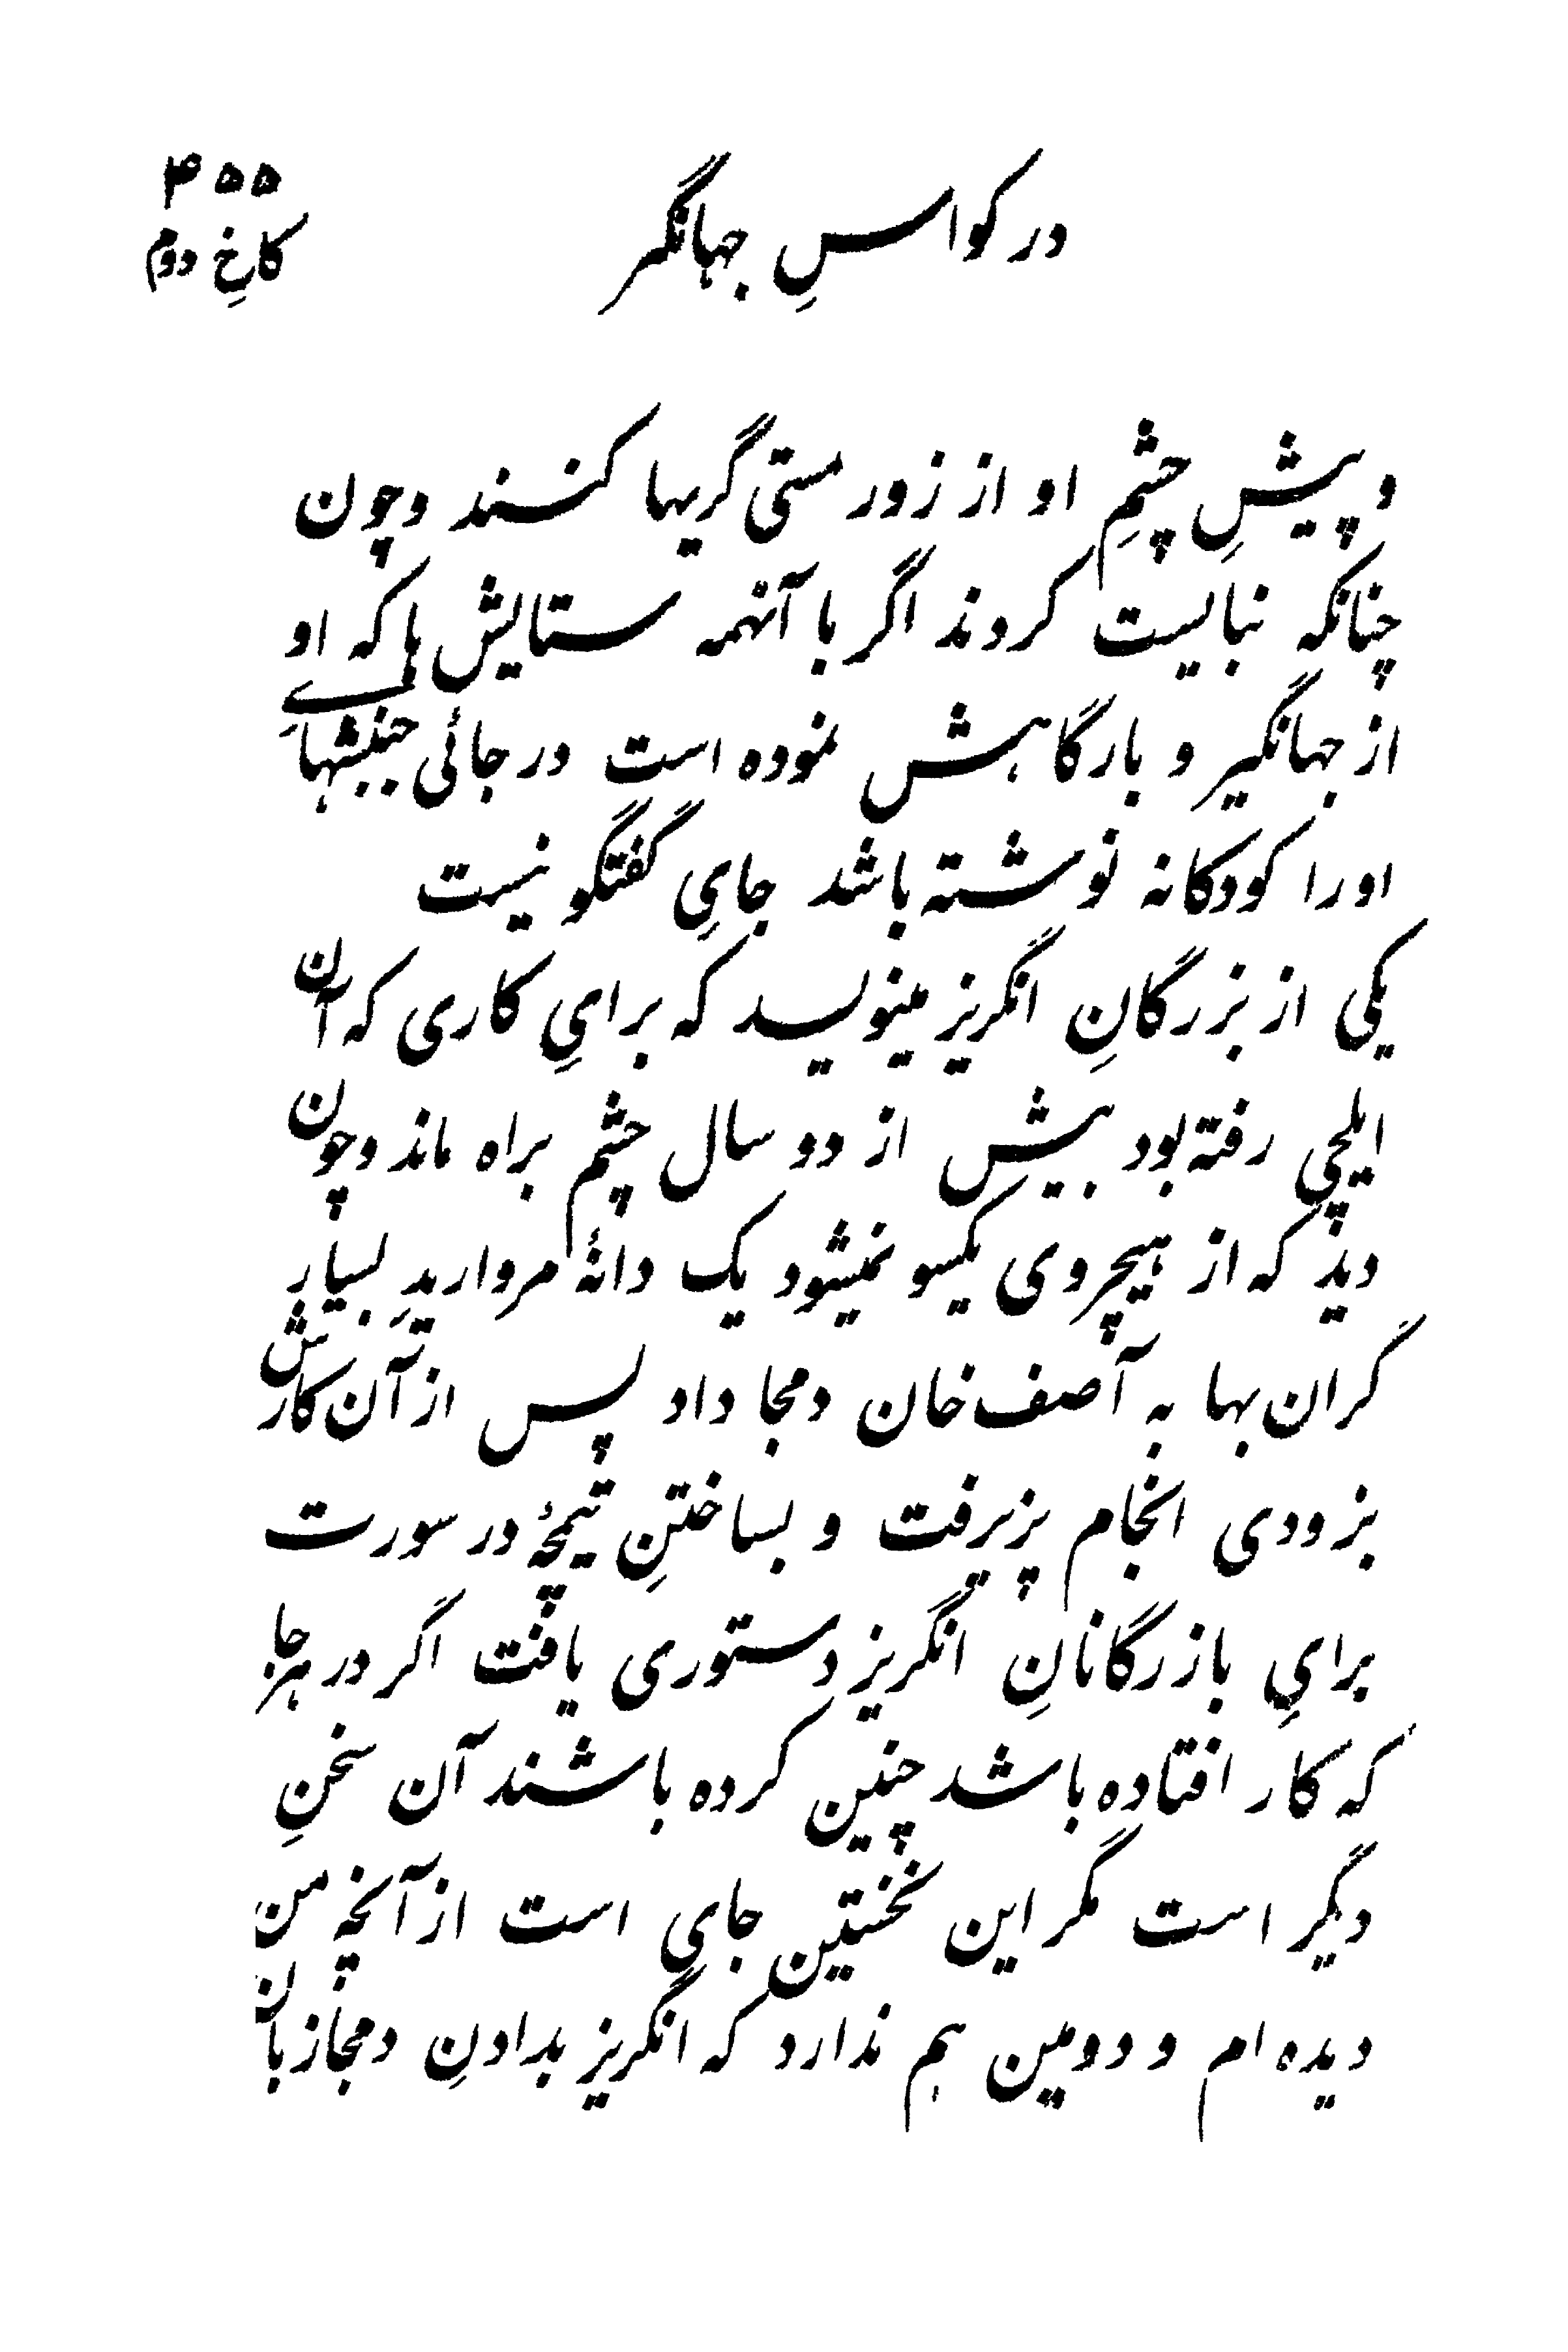 ۴۵۵
در کواسِ جهانگیر
کاخِ دوم
و پیشِ چشمِ او از زور مستی گریها کنند و چون
چنانکه نبایست کردند اگر با آنهمه ستایش ها که او
از جهانگیر و بارگاهش نموده است در جائی جنبشهاے
او را کودکانه نوشته باشد جایِ گفتگو نیست
یکی از بزرگانِ انگریز مینویسد که برایِ کاری که آن
ایلچی رفته بود بیش از دو سال چشم براه ماند و چون
دید که از هیچروی یکسو نمیشود یک دانۀ مرواریدِ بسیار
گران بها به آصف خان دمجا داد پس از آن کارش
بزودی انجام پزیرفت و بساختنِ تیمچۀ در سورت
برایِ بازرگانانِ انگریز دستوری یافت اگر در هر جا
که کار افتاده باشد چنین کرده باشند آن سخنِ
دیگر است مگر این نخستین جای است از آنچه من
دیده ام و دومین هم ندارد که انگریز بدادنِ دمجا زبان